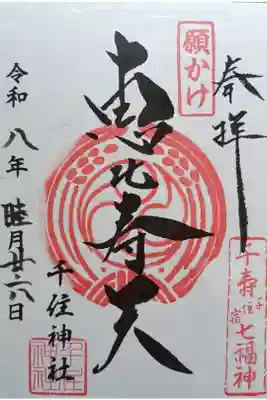 奉拝
願かけ
千住宿
千寿七福神
恵比寿天
千住神社
令和八年
睦月廿八日